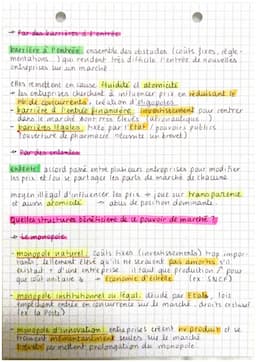 → Par des barrières à l'entrée
barrière à l'entrée: ensemble des obstacles (coûts fixes, régle-
mentations...) qui rendent très difficile l'entrée de nouvelles
entreprises sur un marché
elles remettent en cause fluidité et atomicité
→ les entreprises cherchent à influencer prix en réduisant le
nb de concurrents, création d'oligopoles
- barrière à l'entrée financière: investissement pour rentrer
dans le marché sont très élevés (aéronautique...)
- barrières légales: fixée par l'Etat / pouvoirs publics
(ouverture de pharmacie nécessite un brevet)
→ Par des ententes
entente: accord passé entre plusieurs entreprises pour modifier
les prix et/ou se partager les parts de marché de chacune
moyen illégal d'influencer les prix → joue sur transparence
et aussi atomicité → abus de position dominante
Quelles structures bénéficient de ce pouvoir de marché ?
→ Le monopole
- monopole naturel: coûts fixes (investissements) trop impor-
tants, tellement élevé qu'ils ne seraient pas amortis s'il
existait + d'une entreprise. il faut que production ↗ pour
que coût unitaire ↘ → économie d'échelle (ex: SNCF)
- monopole institutionnel ou légal: décidé par Etats, lois
empêchent entrée en concurrence sur le marché. droits exclusif
(ex: la Poste)
- monopole d'innovation: entreprises créent nv produit et se
trouvent momentanément seules sur le marché
permettent prolongation du monopole